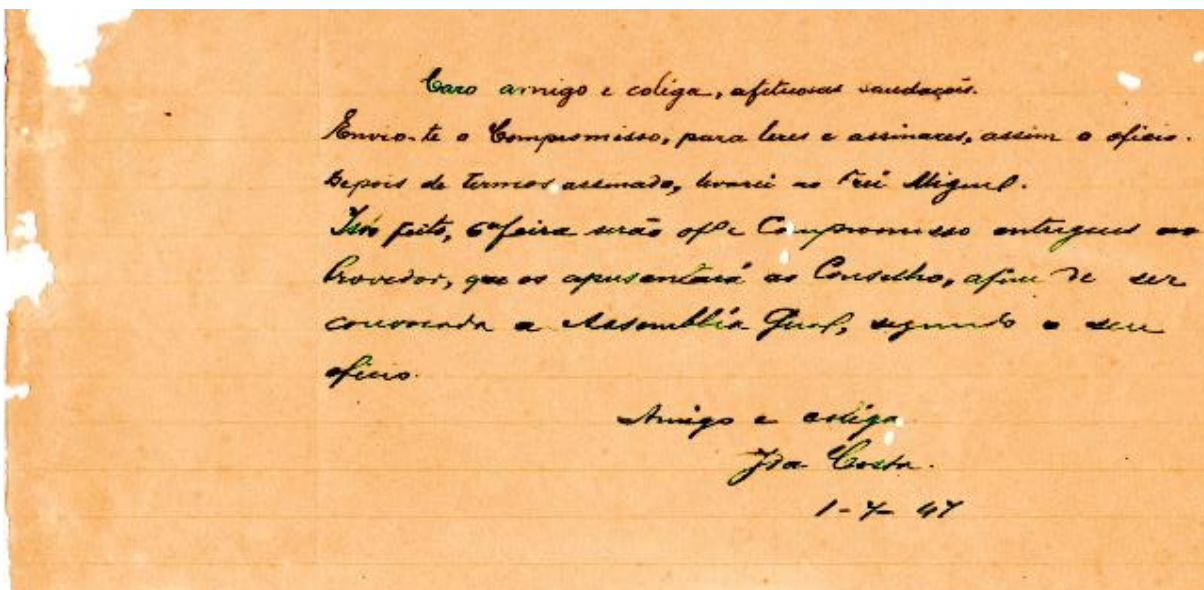 Caro amigo e coléga, afetuosas saudações.
Envio-te o Compromisso, para leres e assinares, assim o oficio.
Depois de termos assinado, levarei ao Frei Miguel.
Isso feito, 6ª feira serão of. e Compromisso entregues ao
Provedor, que os apresentará ao Conselho, afim de ser
convocada a Assembléia Geral, segundo o seu
oficio.
Amigo e coléga
Costa.
1-7-47